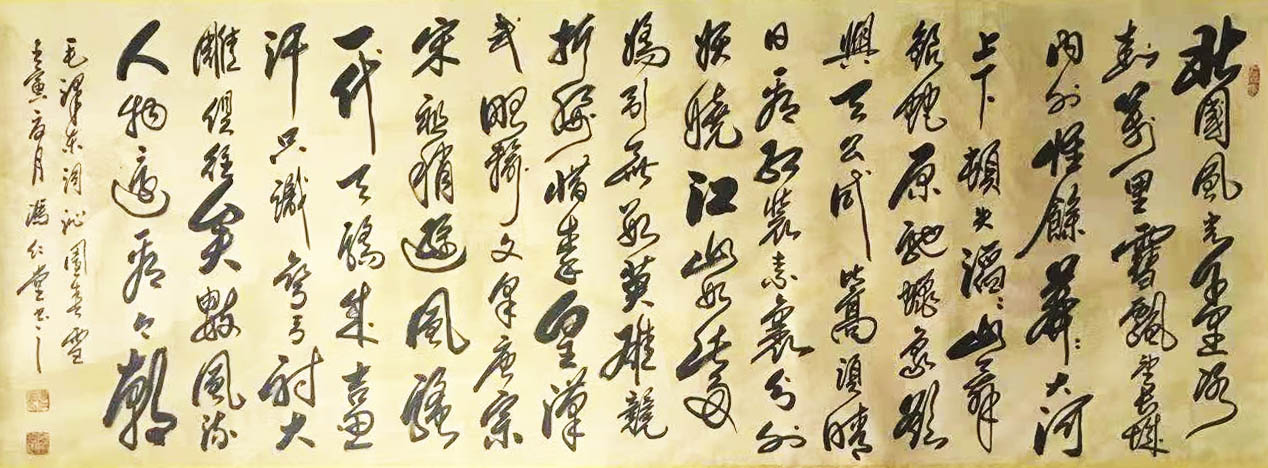 北國風光千里冰
封萬里雪飄望長城
内外惟餘莽莽大河
上下頓失滔滔山舞
銀蛇原馳蠟象欲
與天公試比高須晴
日看紅裝素裹分外
妖嬈江山如此多
嬌引無數英雄競
折腰惜秦皇漢
武略輸文采唐宗
宋祖稍遜風騷
一代天驕成吉思
汗只識彎弓射大
雕俱往矣數風流
人物還看今朝
毛澤東詞沁園春雪
壬寅夏月馮仁堂书之